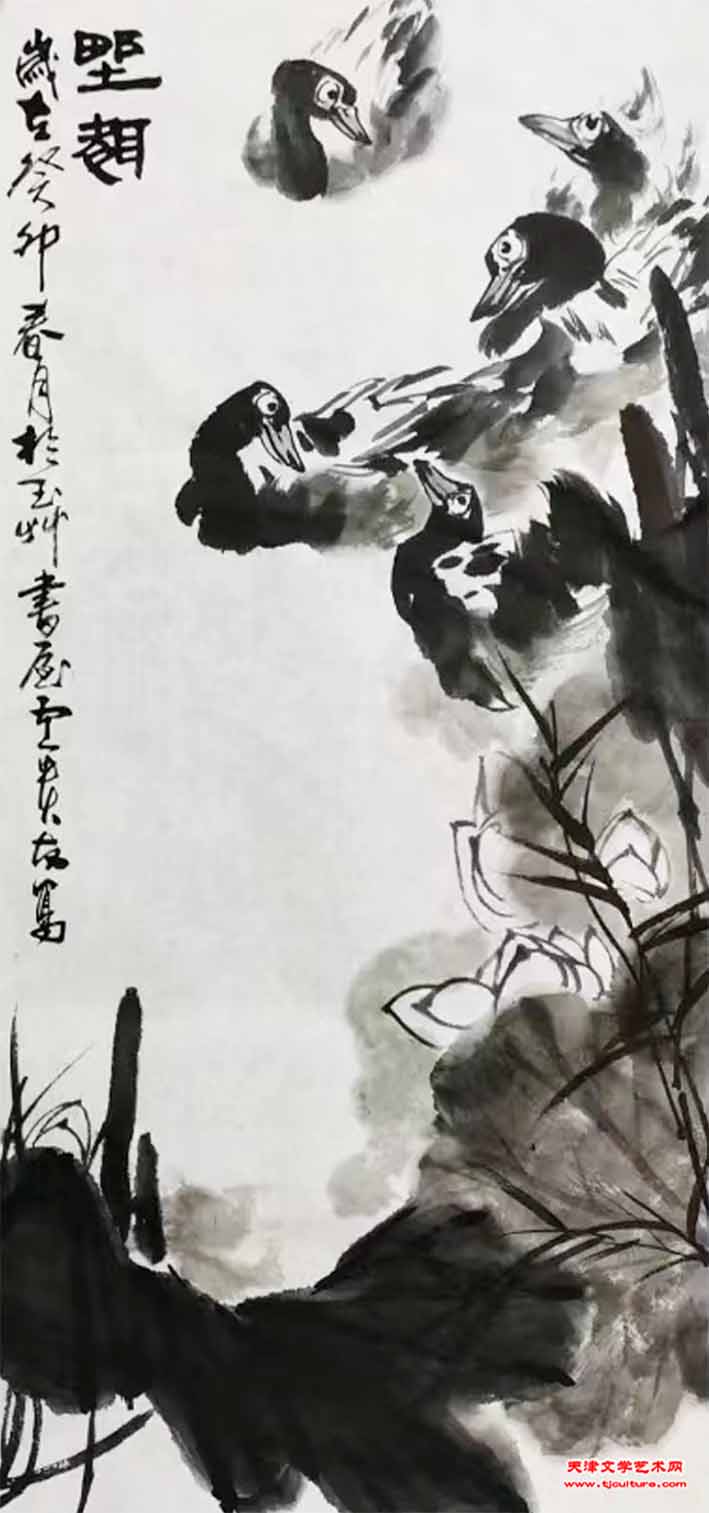 野趣
歲在癸卯春月於玉艸書屋寫
天津文学艺术网
www.tjculture.com